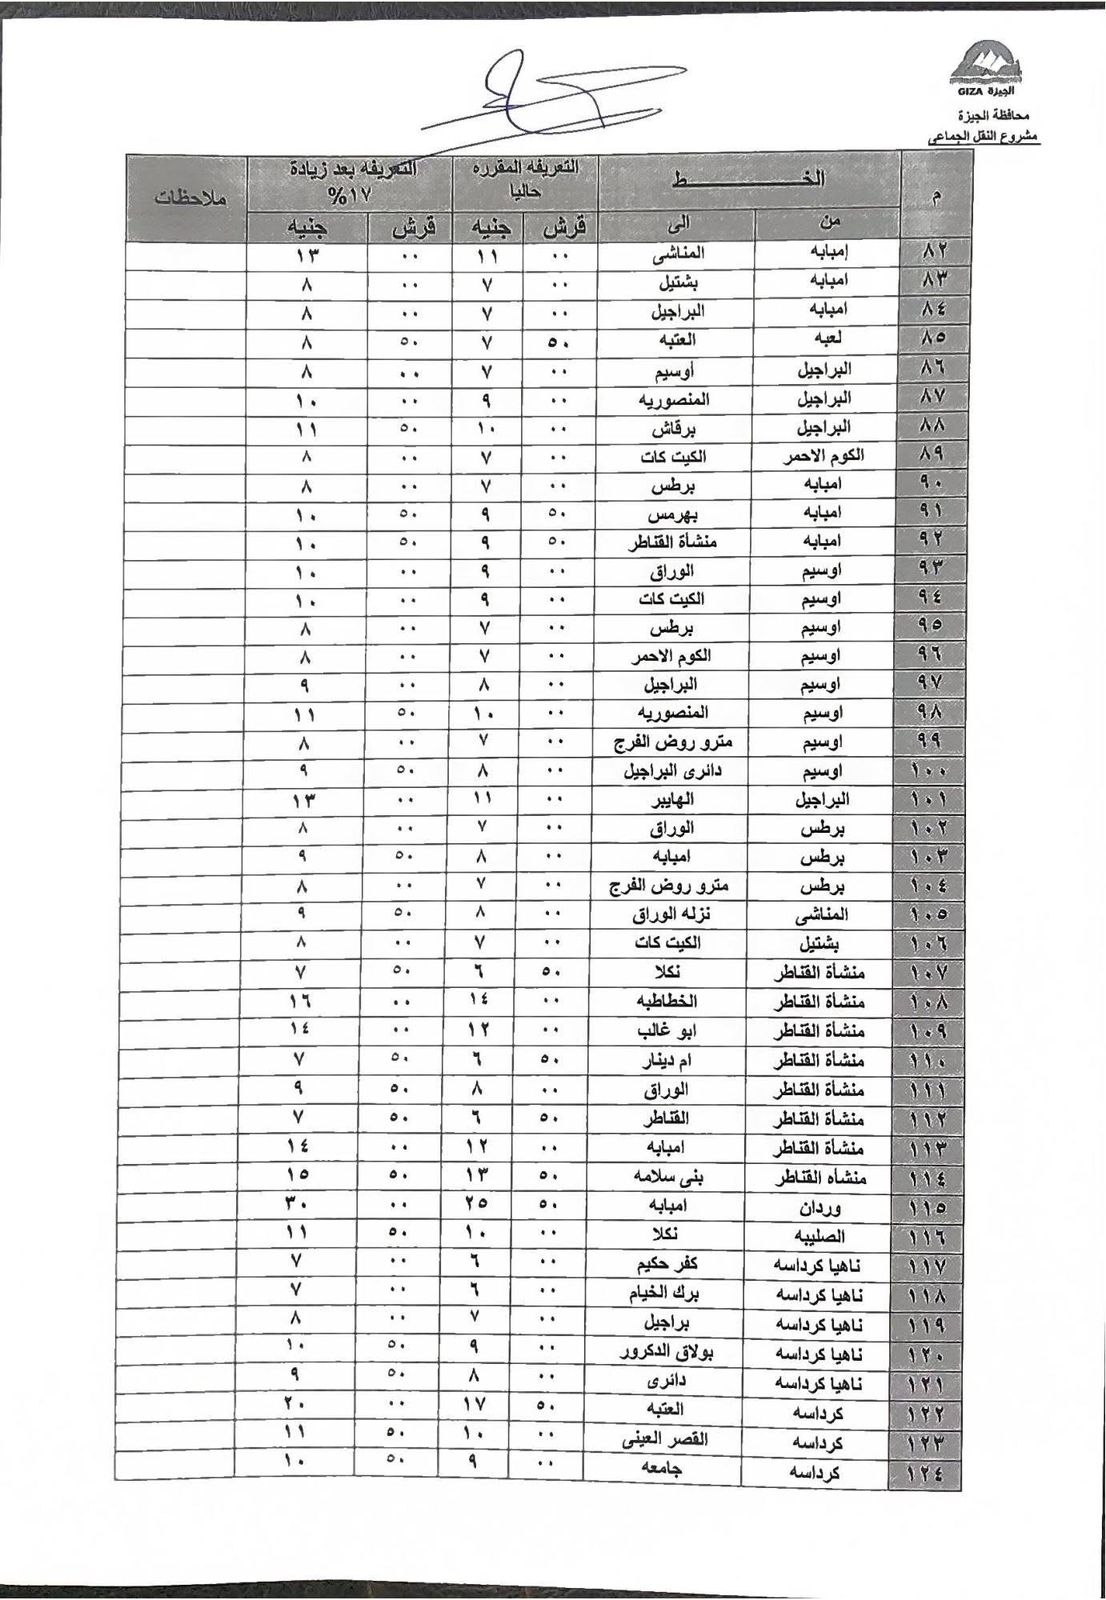 الجيزة GIZA
محافظة الجيزة
مشروع النقل الجماعى
م الخـــــــــط التعريفه المقرره حاليا التعريفه بعد زيادة ١٧% ملاحظات
من الى قرش جنيه قرش جنيه
٨٢ إمبابه المناشى ٠٠ ١١ ٠٠ ١٣
٨٣ امبابه بشتيل ٠٠ ٧ ٠٠ ٨
٨٤ امبابه البراجيل ٠٠ ٧ ٠٠ ٨
٨٥ لعبه العتبه ٥٠ ٧ ٥٠ ٨
٨٦ البراجيل أوسيم ٠٠ ٧ ٠٠ ٨
٨٧ البراجيل المنصوريه ٠٠ ٩ ٠٠ ١٠
٨٨ البراجيل برقاش ٠٠ ١٠ ٥٠ ١١
٨٩ الكوم الاحمر الكيت كات ٠٠ ٧ ٠٠ ٨
٩٠ امبابه برطس ٠٠ ٧ ٠٠ ٨
٩١ امبابه بهرمس ٥٠ ٩ ٥٠ ١٠
٩٢ امبابه منشأة القناطر ٥٠ ٩ ٥٠ ١٠
٩٣ اوسيم الوراق ٠٠ ٩ ٠٠ ١٠
٩٤ اوسيم الكيت كات ٠٠ ٩ ٠٠ ١٠
٩٥ اوسيم برطس ٠٠ ٧ ٠٠ ٨
٩٦ اوسيم الكوم الاحمر ٠٠ ٧ ٠٠ ٨
٩٧ اوسيم البراجيل ٠٠ ٨ ٠٠ ٩
٩٨ اوسيم المنصوريه ٠٠ ١٠ ٥٠ ١١
٩٩ اوسيم مترو روض الفرج ٠٠ ٧ ٠٠ ٨
١٠٠ اوسيم دائرى البراجيل ٠٠ ٨ ٥٠ ٩
١٠١ البراجيل الهايبر ٠٠ ١١ ٠٠ ١٣
١٠٢ برطس الوراق ٠٠ ٧ ٠٠ ٨
١٠٣ برطس امبابه ٠٠ ٨ ٥٠ ٩
١٠٤ برطس مترو روض الفرج ٠٠ ٧ ٠٠ ٨
١٠٥ المناشى نزله الوراق ٠٠ ٨ ٥٠ ٩
١٠٦ بشتيل الكيت كات ٠٠ ٧ ٠٠ ٨
١٠٧ منشأة القناطر نكلا ٥٠ ٦ ٥٠ ٧
١٠٨ منشأة القناطر الخطاطبه ٠٠ ١٤ ٠٠ ١٦
١٠٩ منشأة القناطر ابو غالب ٠٠ ١٢ ٠٠ ١٤
١١٠ منشأة القناطر ام دينار ٥٠ ٦ ٥٠ ٧
١١١ منشأة القناطر الوراق ٠٠ ٨ ٥٠ ٩
١١٢ منشأة القناطر القناطر ٥٠ ٦ ٥٠ ٧
١١٣ منشأة القناطر امبابه ٠٠ ١٢ ٠٠ ١٤
١١٤ منشأه القناطر بنى سلامه ٥٠ ١٣ ٥٠ ١٥
١١٥ وردان امبابه ٥٠ ٢٥ ٠٠ ٣٠
١١٦ الصليبه نكلا ٠٠ ١٠ ٥٠ ١١
١١٧ ناهيا كرداسه كفر حكيم ٠٠ ٦ ٠٠ ٧
١١٨ ناهيا كرداسه برك الخيام ٠٠ ٦ ٠٠ ٧
١١٩ ناهيا كرداسه براجيل ٠٠ ٧ ٠٠ ٨
١٢٠ ناهيا كرداسه بولاق الدكرور ٠٠ ٩ ٥٠ ١٠
١٢١ ناهيا كرداسه دائرى ٠٠ ٨ ٥٠ ٩
١٢٢ كرداسه العتبه ٥٠ ١٧ ٠٠ ٢٠
١٢٣ كرداسه القصر العينى ٠٠ ١٠ ٥٠ ١١
١٢٤ كرداسه جامعه ٠٠ ٩ ٥٠ ١٠